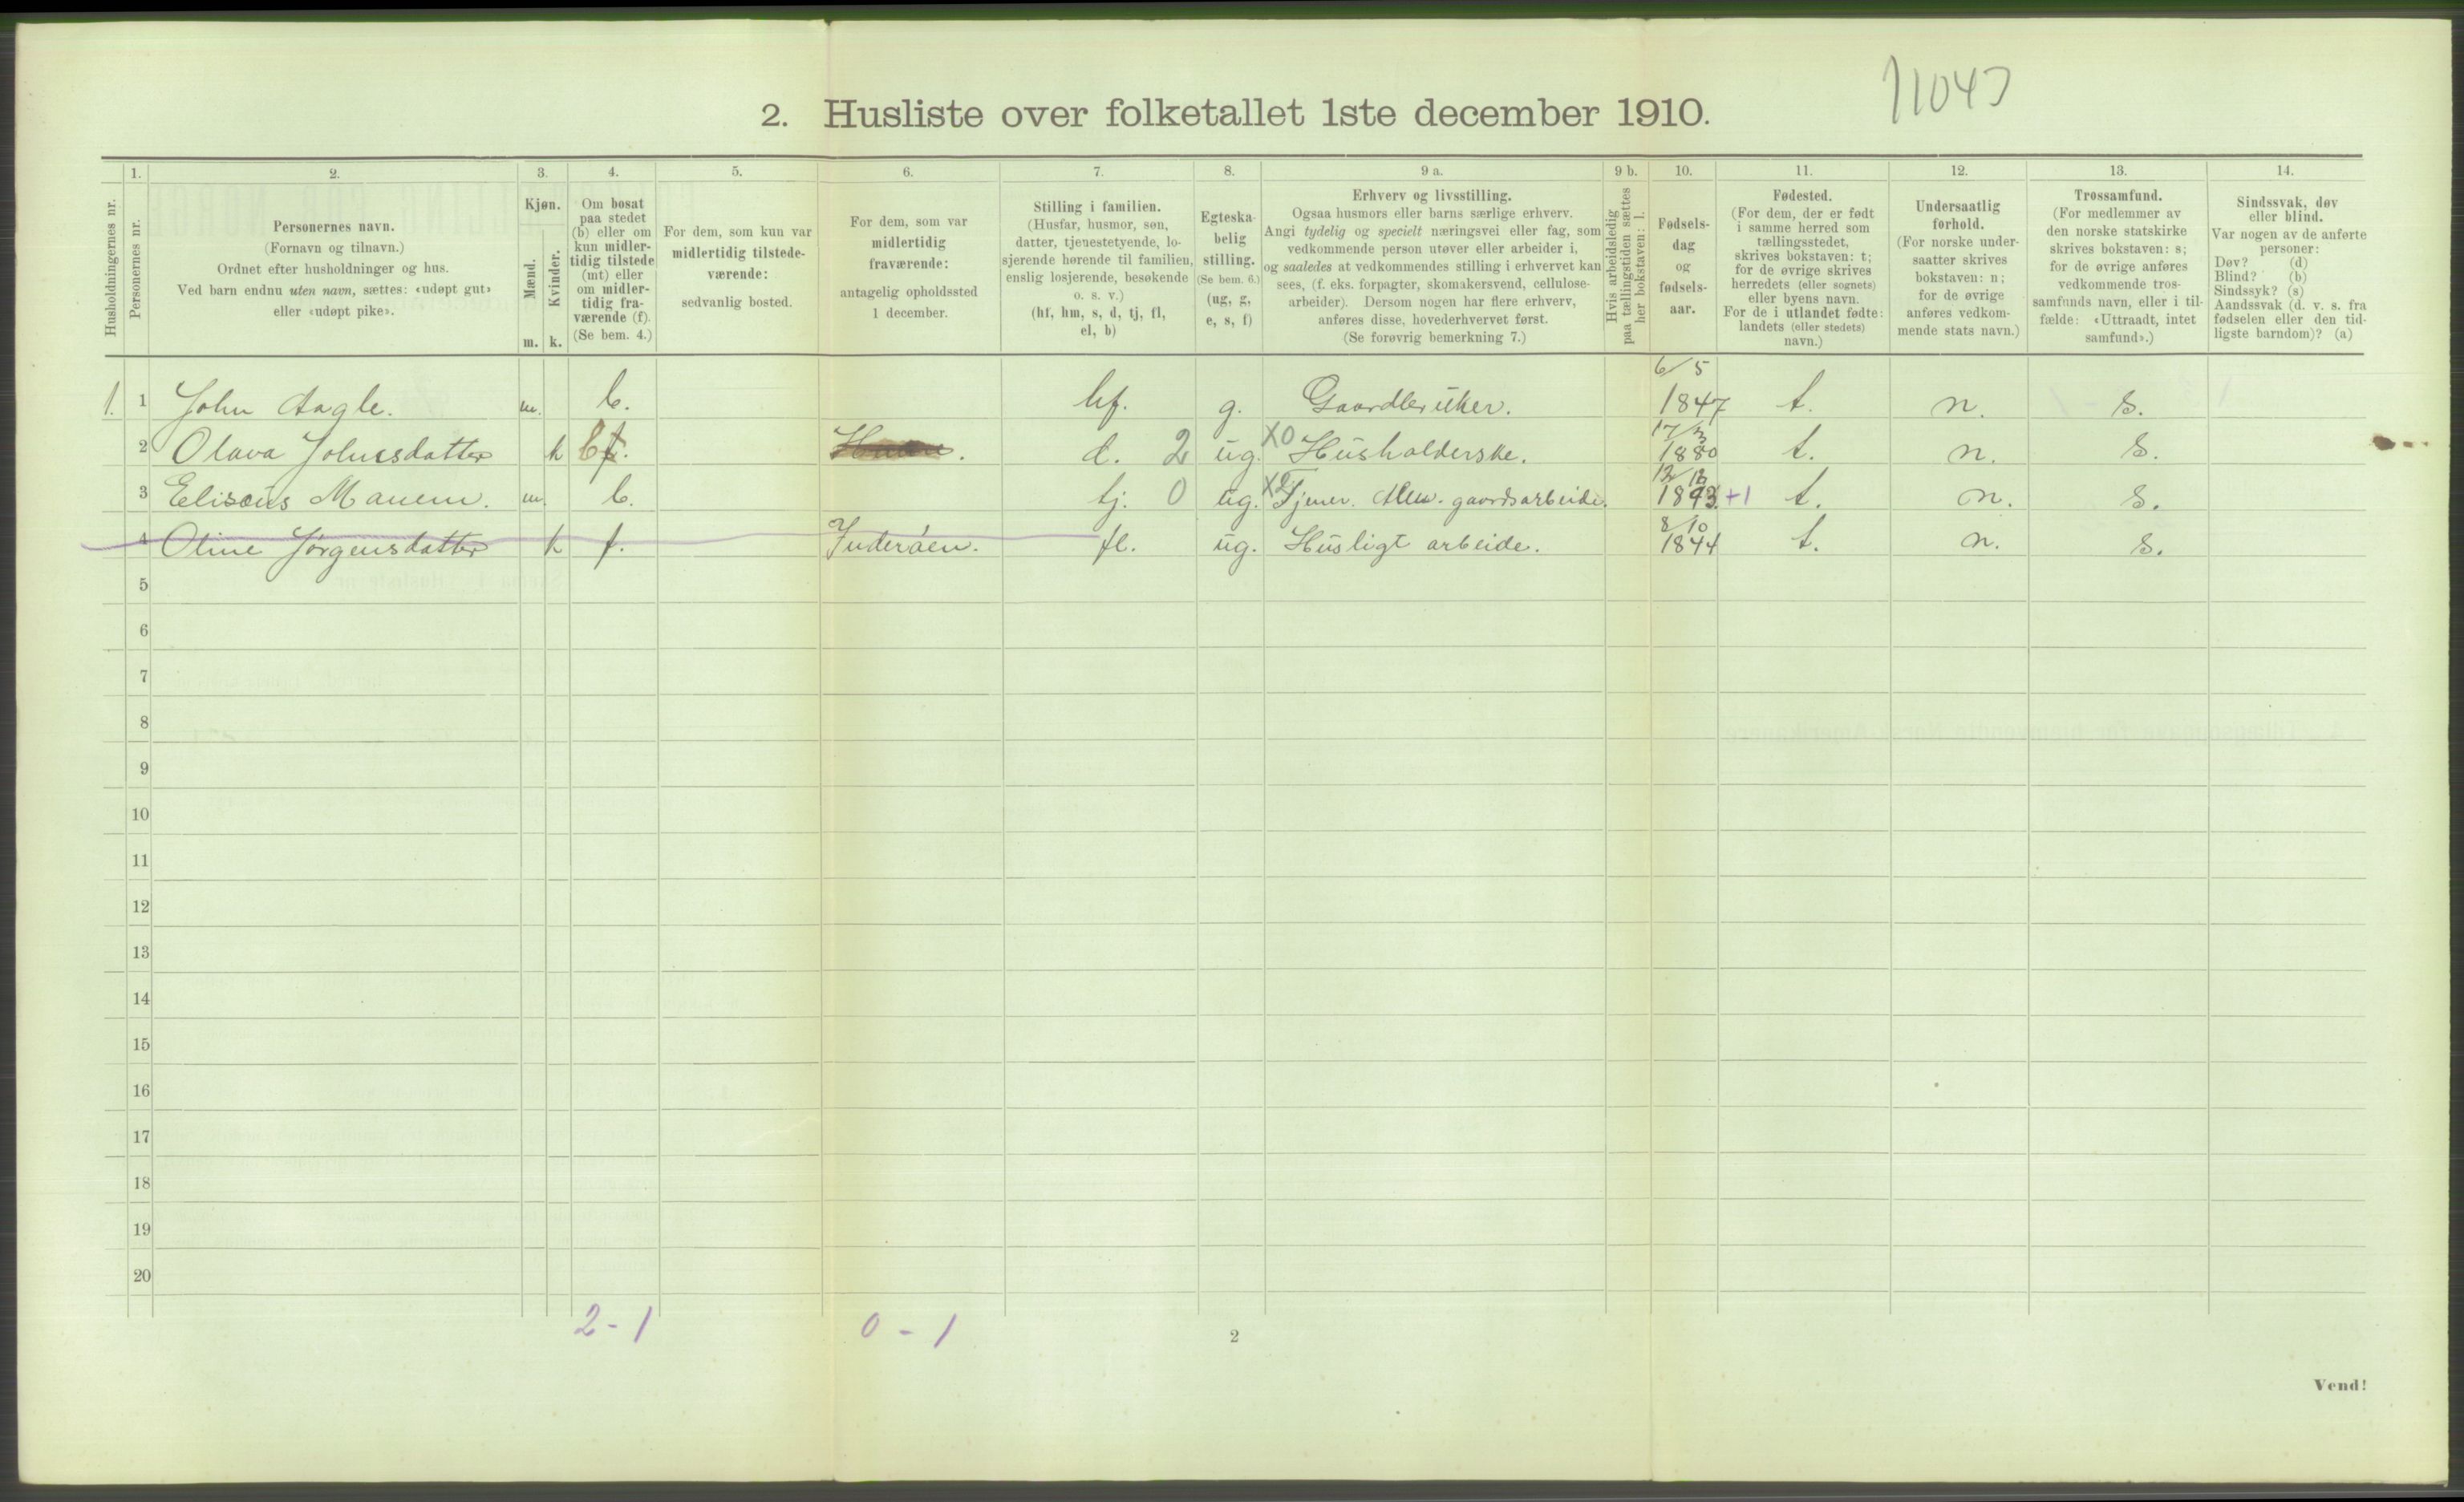 11043
2. Husliste over folketallet 1ste december 1910.
Husholdningernes nr.
1.
Personernes nr.
2.
Personernes navn.
(Fornavn og tilnavn.)
Ordnet efter husholdninger og hus.
Ved barn endnu uten navn, sættes: «udøpt gut»
eller «udøpt pike».
3.
Kjøn.
Mænd.
Kvinder.
m. k.
4.
Om bosat
paa stedet
(b) eller om
kun midler-
tidig tilstede
(mt) eller
om midler-
tidig fra-
værende (f).
(Se bem. 4.)
5.
For dem, som kun var
midlertidig tilstede-
værende:
sedvanlig bosted.
6.
For dem, som var
midlertidig
fraværende:
antagelig opholdssted
1 december.
7.
Stilling i familien.
(Husfar, husmor, søn,
datter, tjenestetyende, lo-
sjerende hørende til familien,
enslig losjerende, besøkende
o. s. v.)
(hf, hm, s, d, tj, fl,
el, b)
8.
Egteska-
belig
stilling.
(Se bem. 6.)
(ug, g,
e, s, f)
9 a.
Erhverv og livsstilling.
Ogsaa husmors eller barns særlige erhverv.
Angi tydelig og specielt næringsvei eller fag, som
vedkommende person utøver eller arbeider i,
og saaledes at vedkommendes stilling i erhvervet kan
sees, (f. eks. forpagter, skomakersvend, cellulose-
arbeider). Dersom nogen har flere erhverv,
anføres disse, hovederhvervet først.
(Se forøvrig bemerkning 7.)
9 b.
Hvis arbeidsledig
paa tællingstiden sættes
her bokstaven: l.
10.
Fødsels-
dag
og
fødsels-
aar.
11.
Fødested.
(For dem, der er født
i samme herred som
tællingsstedet,
skrives bokstaven: t;
for de øvrige skrives
herredets (eller sognets)
eller byens navn.
For de i utlandet fødte:
landets (eller stedets)
navn.)
12.
Undersaatlig
forhold.
(For norske under-
saatter skrives
bokstaven: n;
for de øvrige
anføres vedkom-
mende stats navn.)
13.
Trossamfund.
(For medlemmer av
den norske statskirke
skrives bokstaven: s;
for de øvrige anføres
vedkommende tros-
samfunds navn, eller i til-
fælde: «Uttraadt, intet
samfund».)
14.
Sindssvak, døv
eller blind.
Var nogen av de anførte
personer:
Døv? (d)
Blind? (b)
Sindssyk? (s)
Aandssvak (d. v. s. fra
fødselen eller den tid-
ligste barndom)? (a)
6/5
1. 1 John Aagle. m. b. hf. g. Gaardbruker. 1847 t. n. s.
17/3
2 Olava Johnsdatter k b f. d. 2 ug. X0 Husholderske. 1880 t. n. s.
12/12
3 Eliseus Manem. m. b. tj. 0 ug. Tjener. Alm. gaardsarbeide. 1893 +1 t. n. s.
8/10
4 Oline Jørgensdatter k f. Inderøen. fl. ug. Husligt arbeide. 1844 t. n. s.
5
6
7
8
9
10
11
12
13
14
15
16
17
18
19
20
2 - 1 0 - 1
2
Vend!